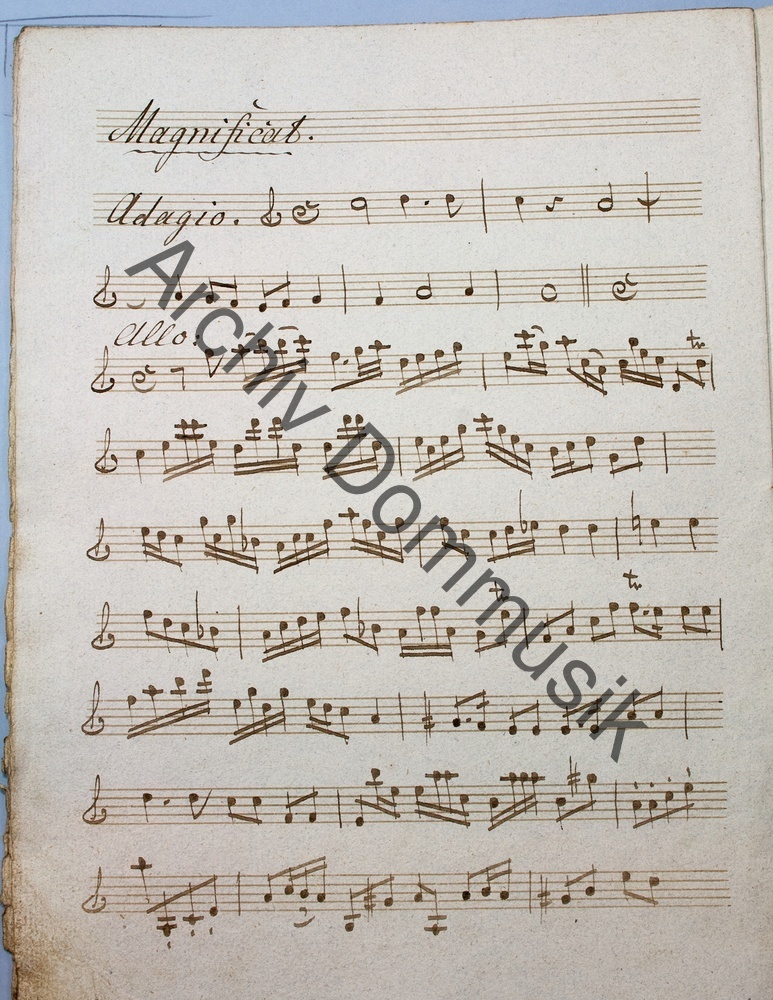 Magnificat.
Adagio.
Allo:
tr
tr
tr
Archiv Dommusik